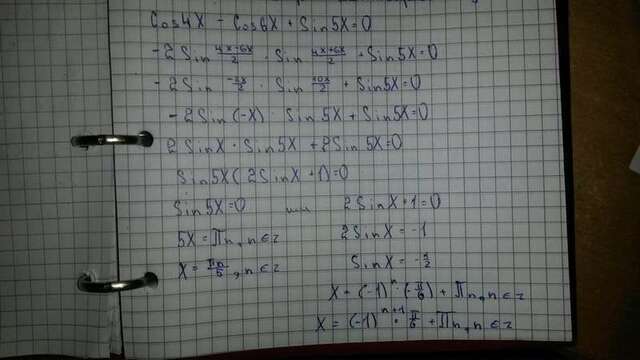 Cos4x - Cos6x + Sin5x=0
-2Sin (4x-6x)/2 · Sin (4x+6x)/2 + Sin5x=0
-2Sin (-2x)/2 · Sin (10x)/2 + Sin5x=0
-2Sin(-x) · Sin 5x + Sin5x=0
2Sinx · Sin5x + 2Sin 5x=0
Sin5x(2Sinx+1)=0
Sin5x=0 или 2Sinx+1=0
5x=Πn, n∈z 2Sinx=-1
x=Πn/5, n∈z Sinx=-1/2
x=(-1)^n·(-π/6)+Πn, n∈z
x=(-1)^(n+1)·π/6+Πn, n∈z